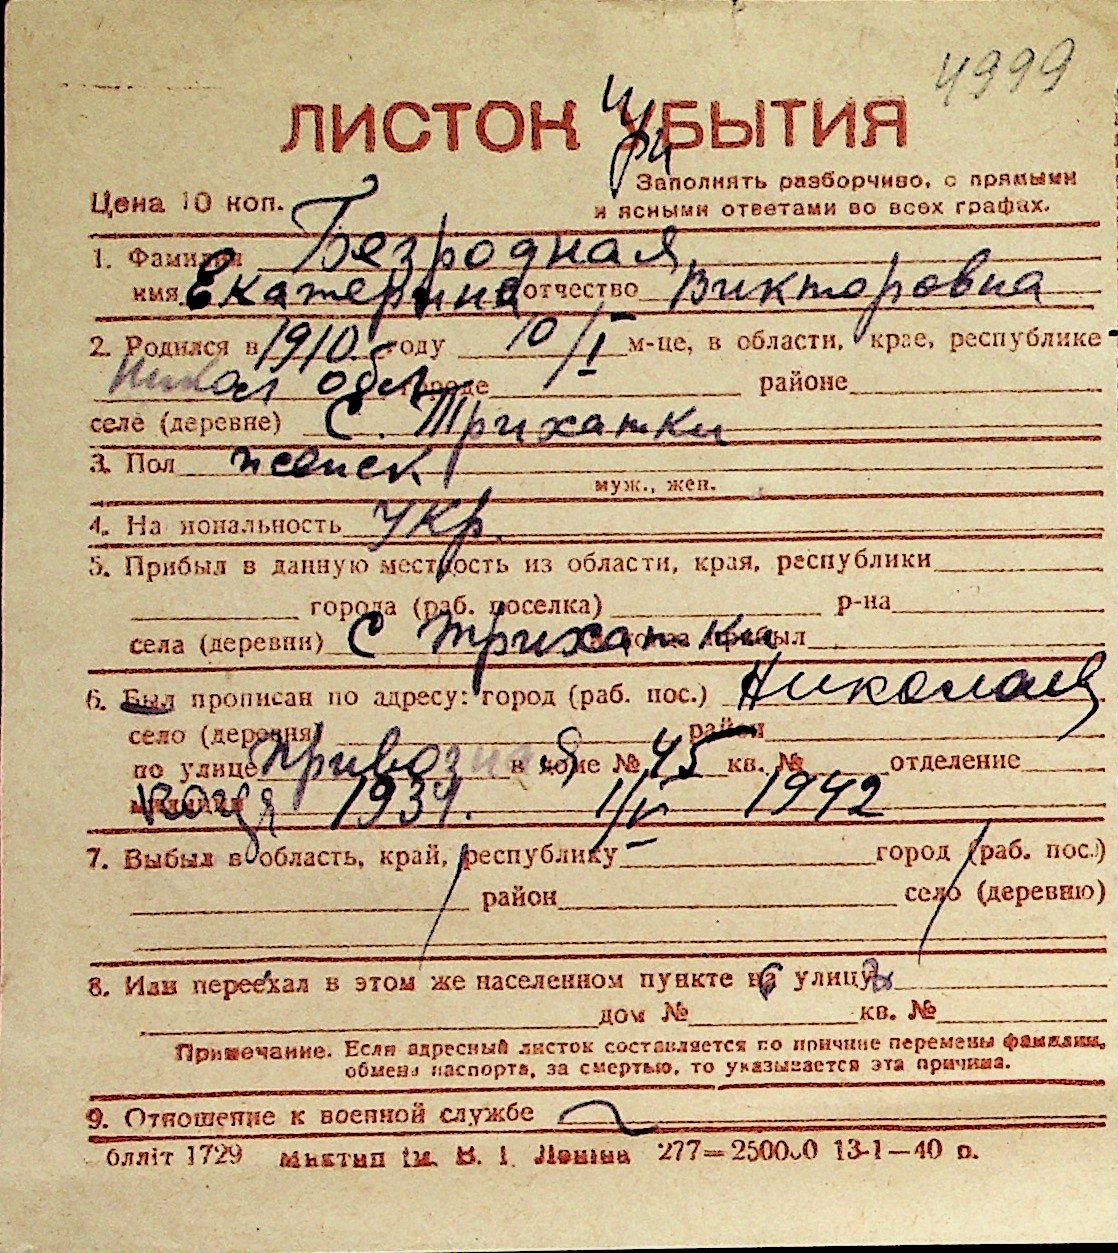 4999
ЛИСТОК УБЫТИЯ
При
Цена 10 коп.
Заполнять разборчиво, с прямыми
и ясными ответами во всех графах.
1. Фамилия Безродная
имя Екатерина отчество Викторовна
2. Родился в 1910 году 10/I м-це, в области, крае, республике
Никол обл городе районе
селе (деревне) С. Трихатки
3. Пол женск
муж., жен.
4. Национальность укр.
5. Прибыл в данную местность из области, края, республики
города (раб. поселка) р-на
села (деревни) С Трихатки прибыл
6. Был прописан по адресу: город (раб. пос.) Николаев
село (деревня) район
по улице Привозная в доме № 45 кв. № отделение
милиции 1934. 1/IV 1942
7. Выбыл в область, край, республику город (раб. пос.)
район село (деревню)
8. Или переехал в этом же населенном пункте на улицу
дом № кв. №
Примечание. Если адресный листок составляется по причине перемены фамилии,
обмена паспорта, за смертью, то указывается эта причина.
9. Отношение к военной службе
блліт 1729 Миктип ім. В. І. Леніна 277—250000 13-1—40 р.